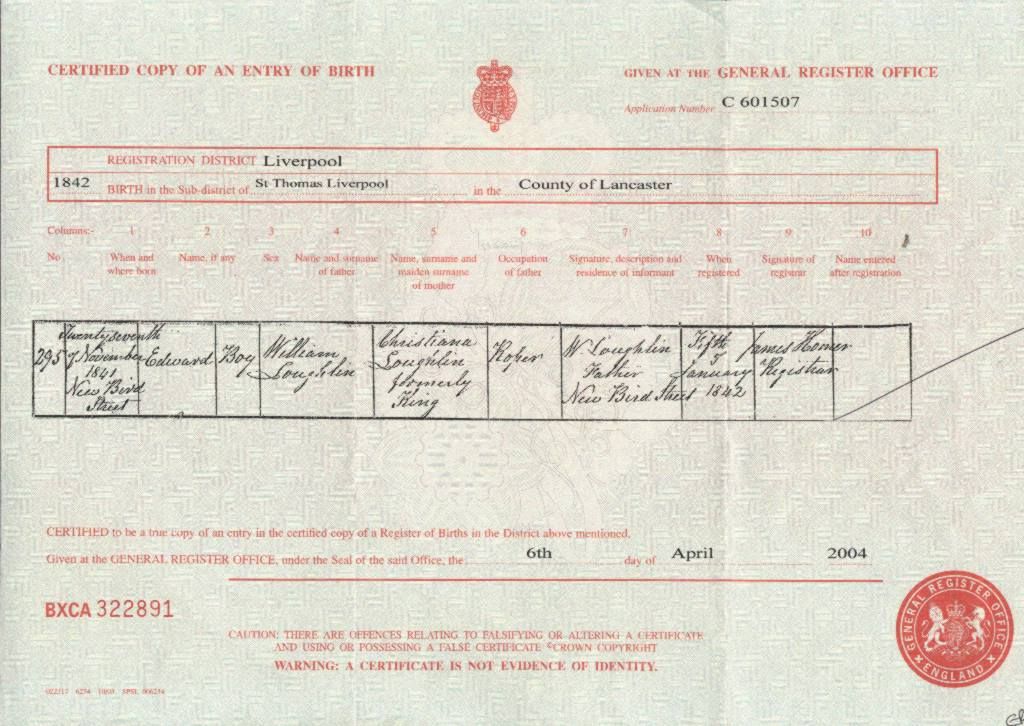 CERTIFIED COPY OF AN ENTRY OF BIRTH
GIVEN AT THE GENERAL REGISTER OFFICE
Application Number C 601507
REGISTRATION DISTRICT Liverpool
1842 BIRTH in the Sub-district of St Thomas Liverpool in the County of Lancaster
Columns:- 1 2 3 4 5 6 7 8 9 10
No When and where born Name, if any Sex Name and surname of father Name, surname and maiden surname of mother Occupation of father Signature, description and residence of informant When registered Signature of registrar Name entered after registration
295
Twenty seventh
of November
1841
New Bird
Street
Edward
Boy
William
Loughlin
Christiana
Loughlin
formerly
King
Roper
W Loughlin
Father
New Bird Street
Fifth
January
1842
James Homer
Registrar
CERTIFIED to be a true copy of an entry in the certified copy of a Register of Births in the District above mentioned.
Given at the GENERAL REGISTER OFFICE, under the Seal of the said Office, the 6th day of April 2004
BXCA 322891
CAUTION: THERE ARE OFFENCES RELATING TO FALSIFYING OR ALTERING A CERTIFICATE
AND USING OR POSSESSING A FALSE CERTIFICATE ©CROWN COPYRIGHT
WARNING: A CERTIFICATE IS NOT EVIDENCE OF IDENTITY.
GENERAL REGISTER OFFICE
ENGLAND